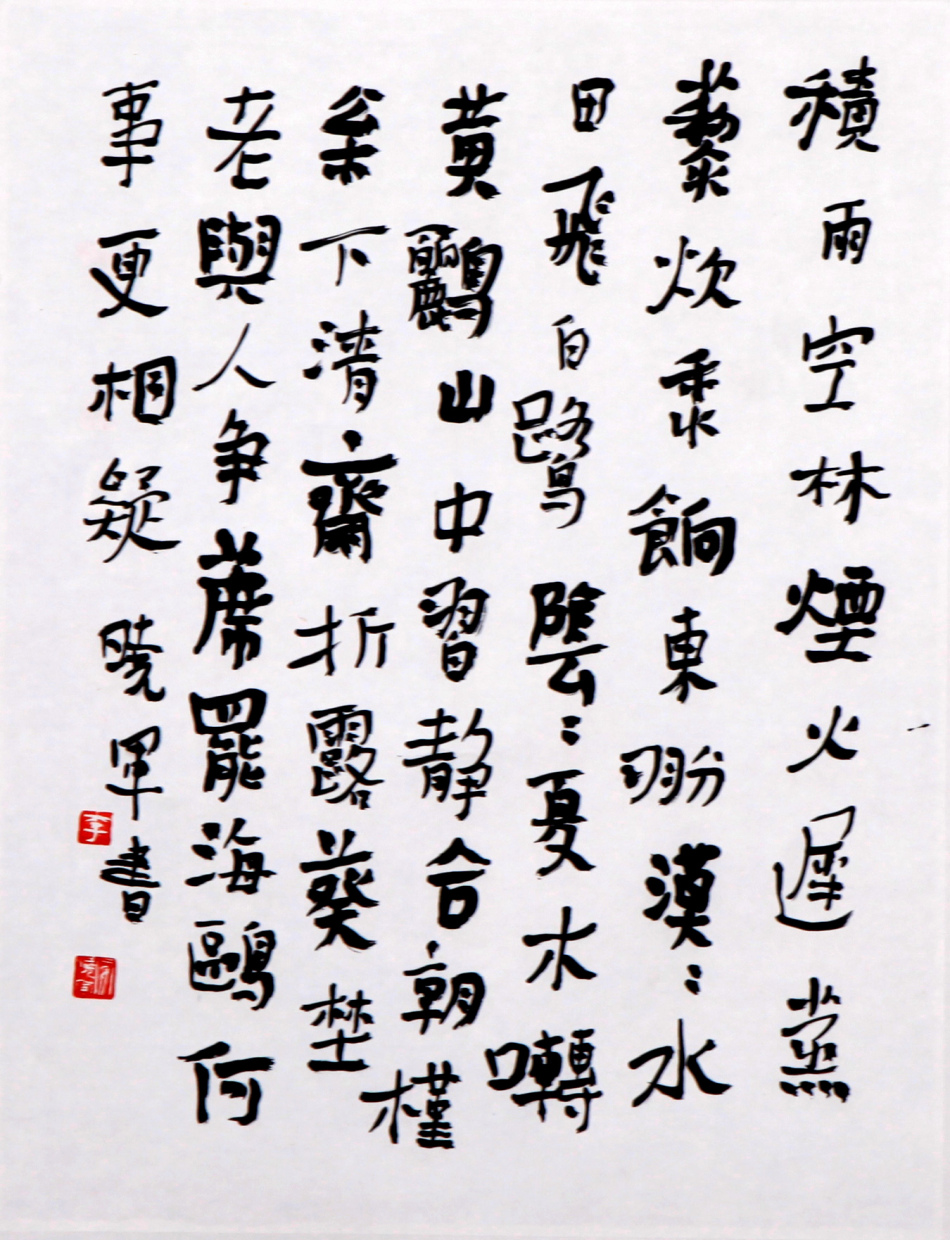 積雨空林煙火遲蒸
藜炊黍餉東漠〻水
田飛白鷺陰〻夏木囀
黄鸝山中習静合朝槿
枀下清齋折露葵埜
老與人争蓆罷海鷗何
事更相疑曉軍書
李